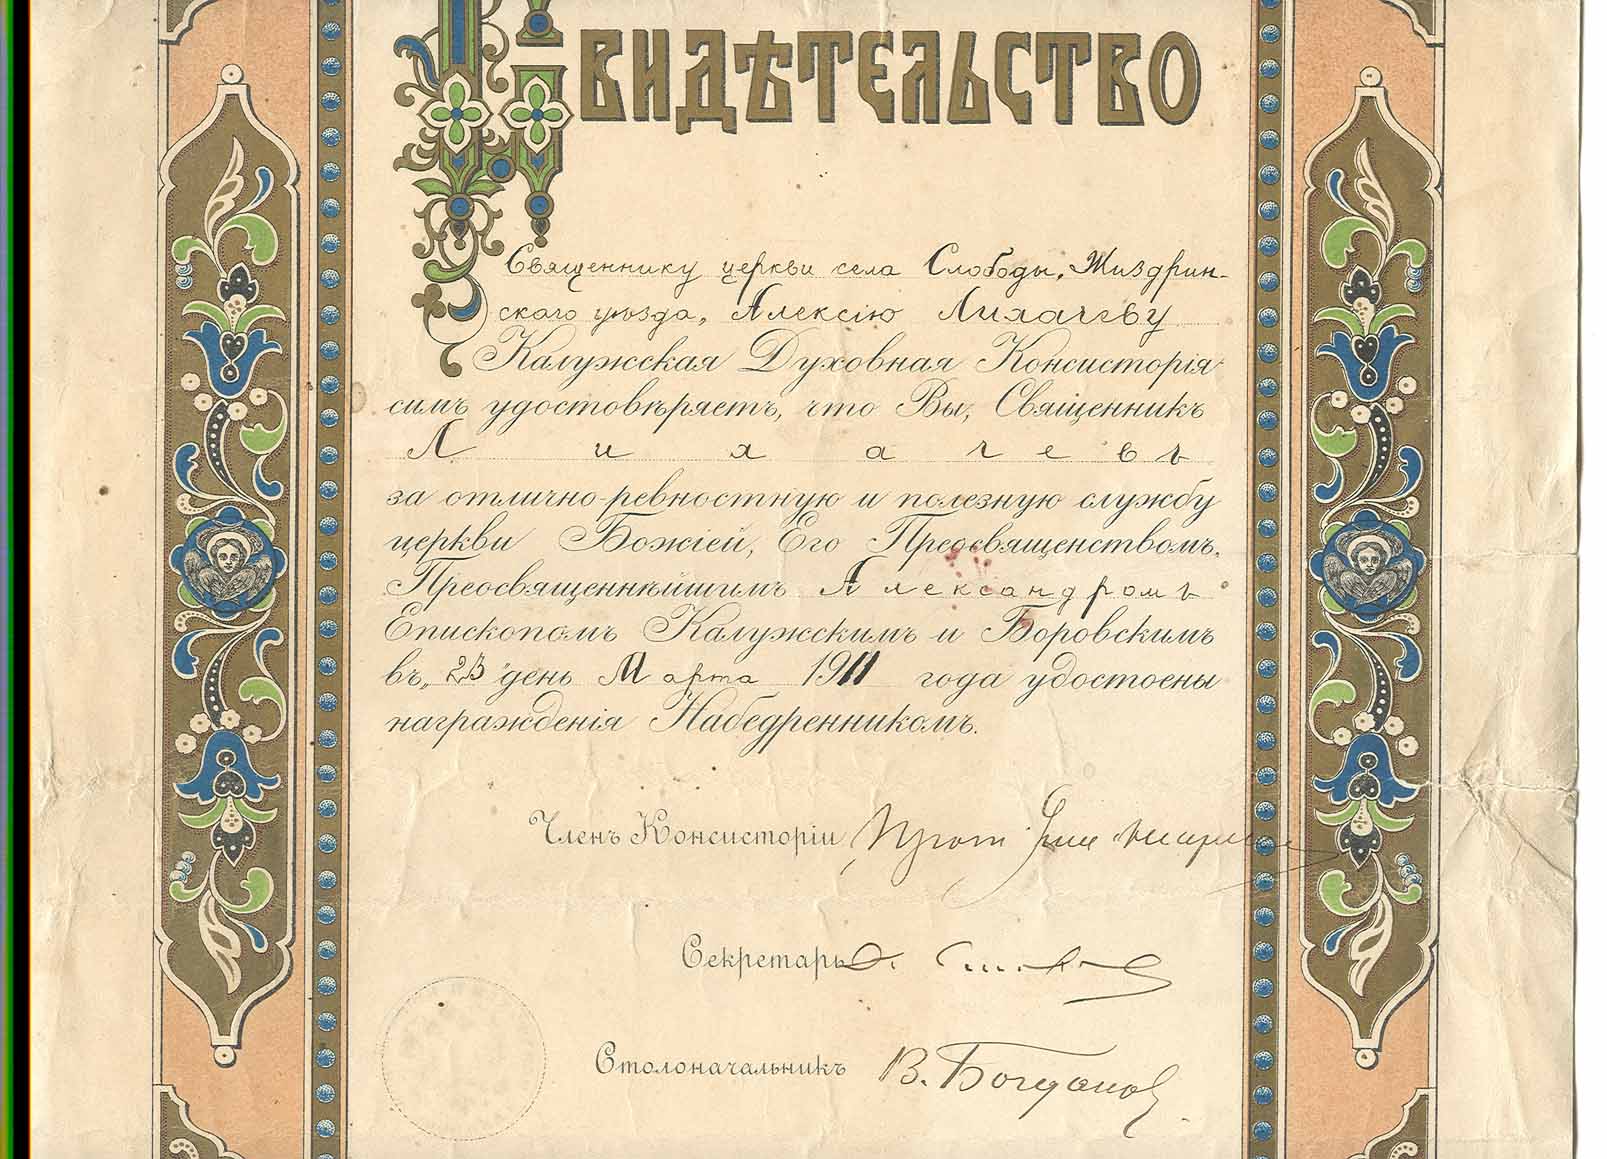 СВИДѢТЕЛЬСТВО
Священнику церкви села Слободы, Жиздрин-
скаго уѣзда, Алексію Лихачеву
Калужская Духовная Консисторія
симъ удостовѣряетъ, что Вы, Священникъ
Лихачевъ
за отлично-ревностную и полезную службу
церкви Божіей, Его Преосвященствомъ,
Преосвященнѣйшимъ Александромъ
Епископомъ Калужскимъ и Боровскимъ
въ „23" день Марта 1911 года удостоены
награжденія Набедренникомъ.
Членъ Консисторіи Прот
Секретарь
Столоначальникъ В. Богданов